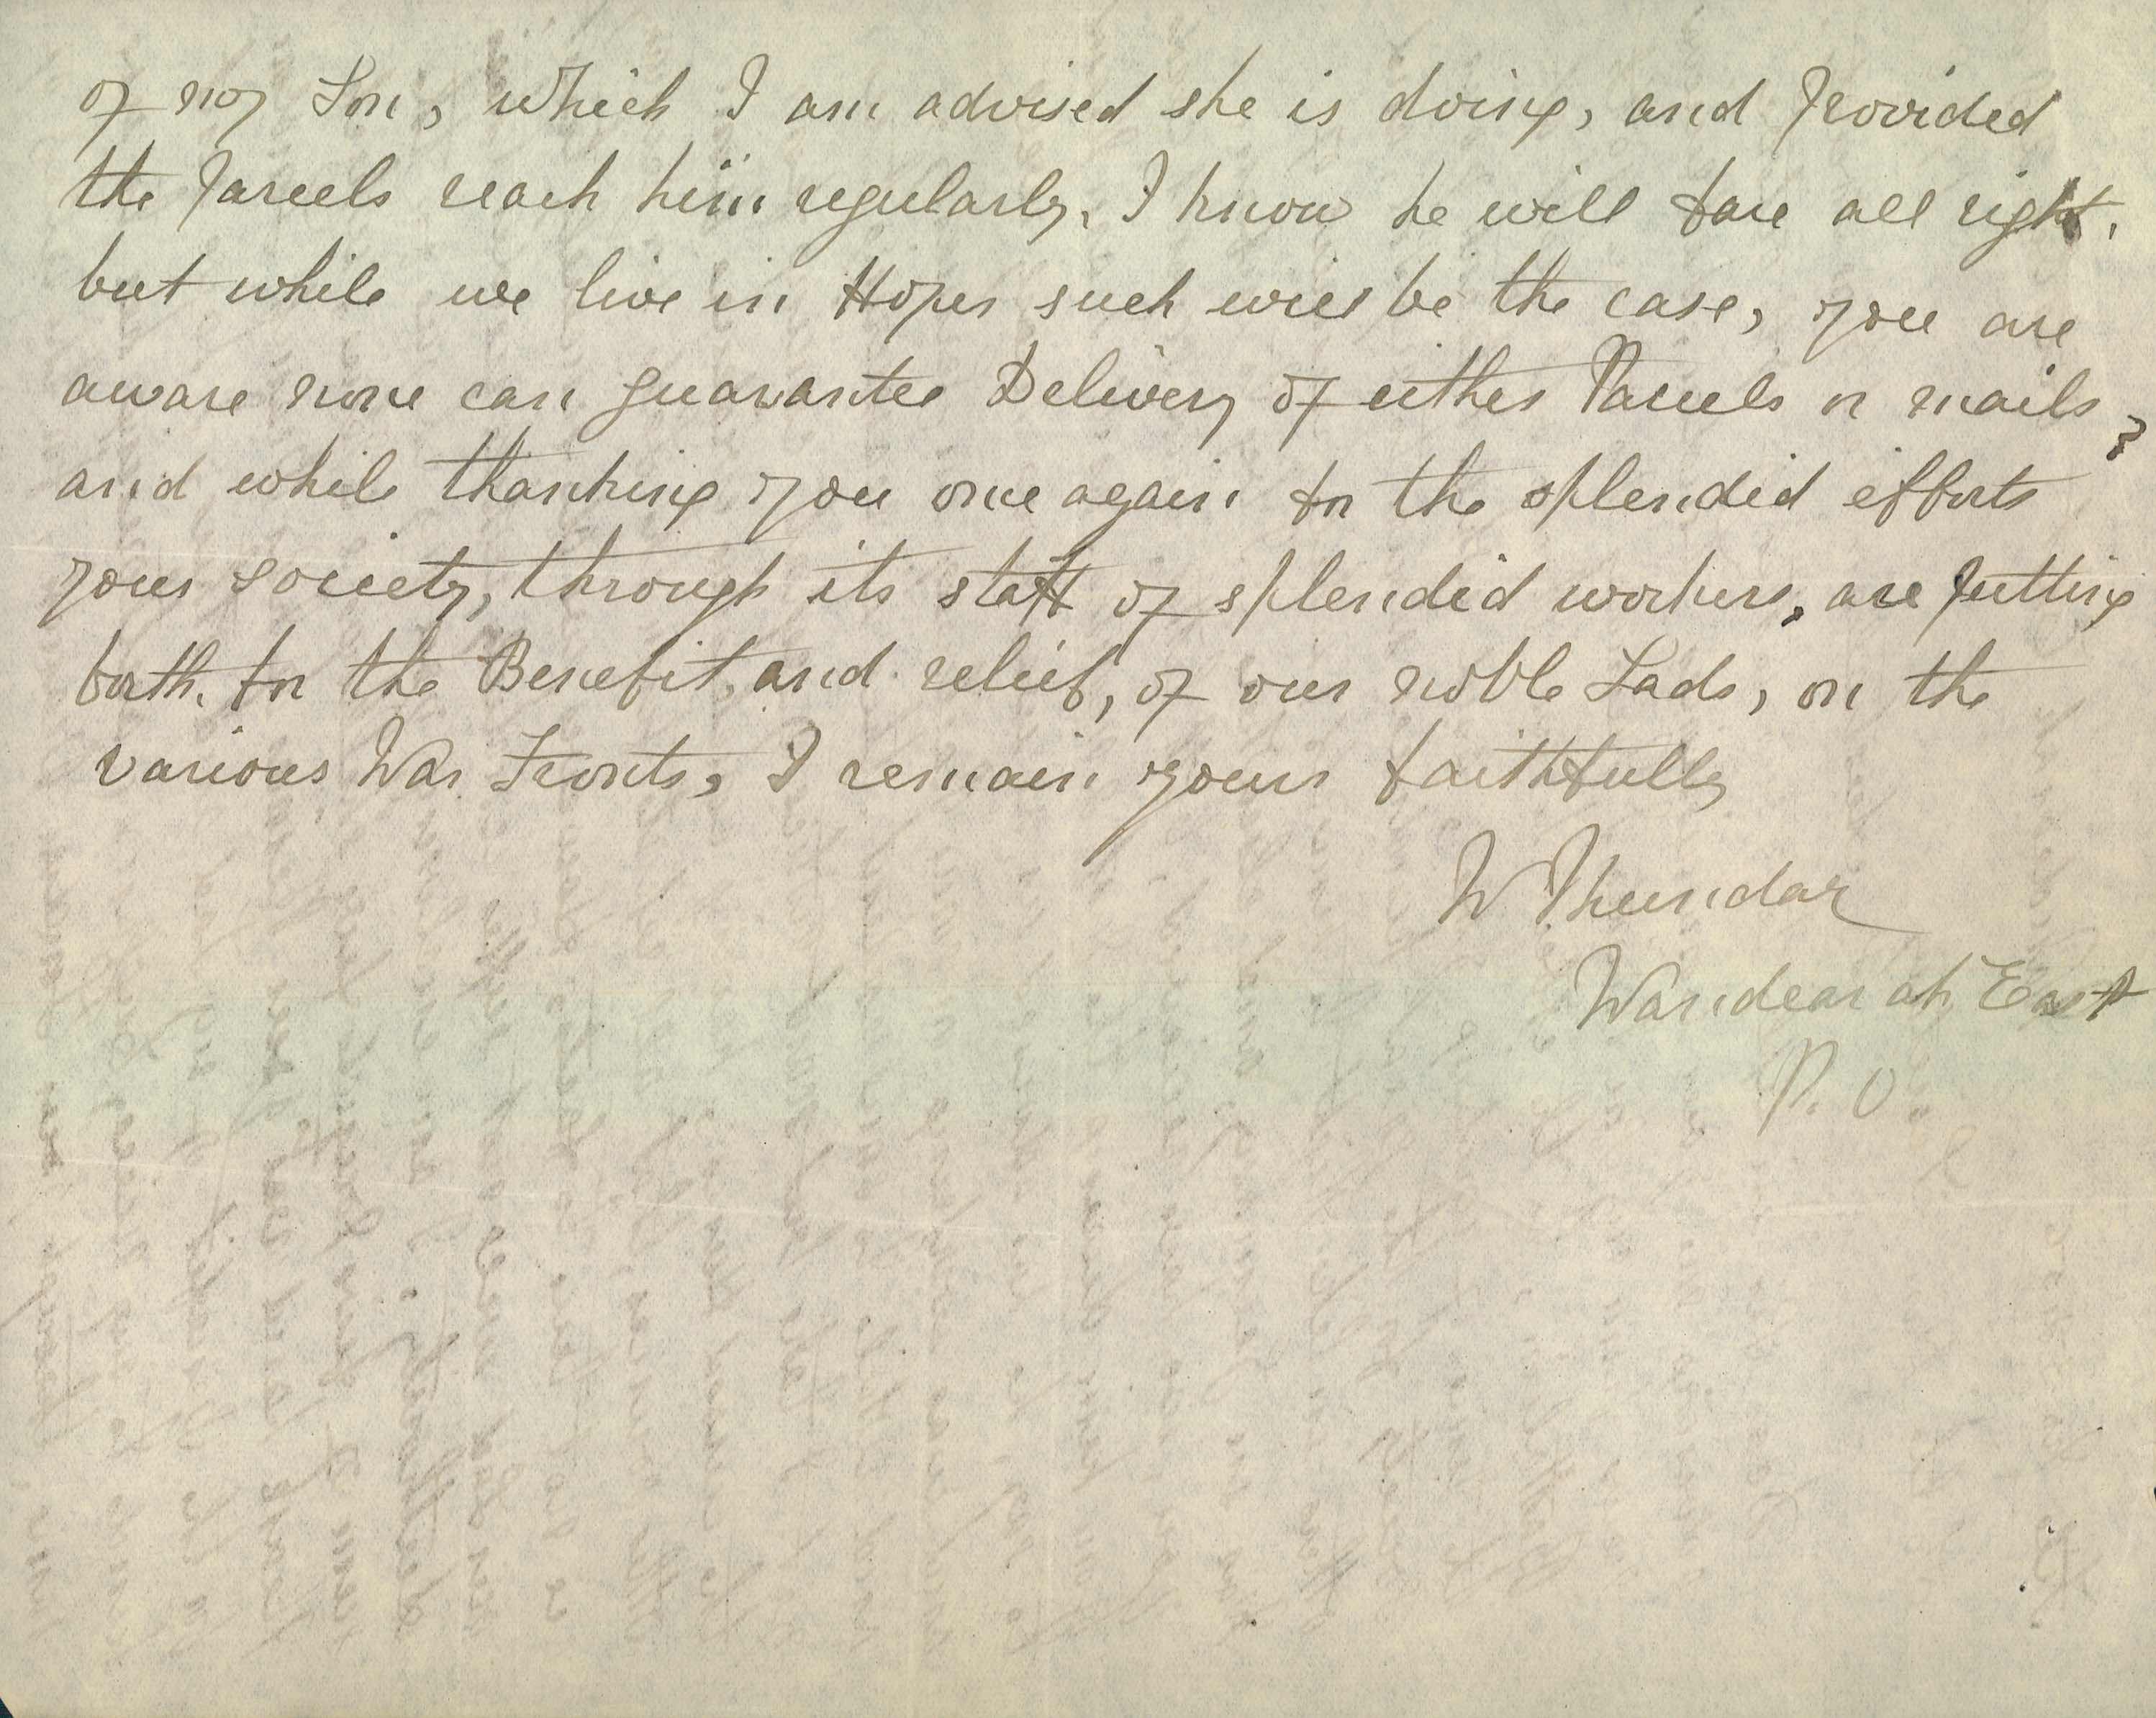 of my Son, which I am advised she is doing, and provided
the parcels reach him regularly, I know he will fare all right,
but while we live in Hopes such will be the case, you are
aware none can guarantee Delivery of either Parcels or mails,
and while thanking you once again for the splendid efforts
your society, through its staff of splendid workers, are putting
forth, for the Benefit, and relief, of our noble Lads, on the
various War Fronts, I remain yours faithfully
W Thundar
Wandearah East
P. O